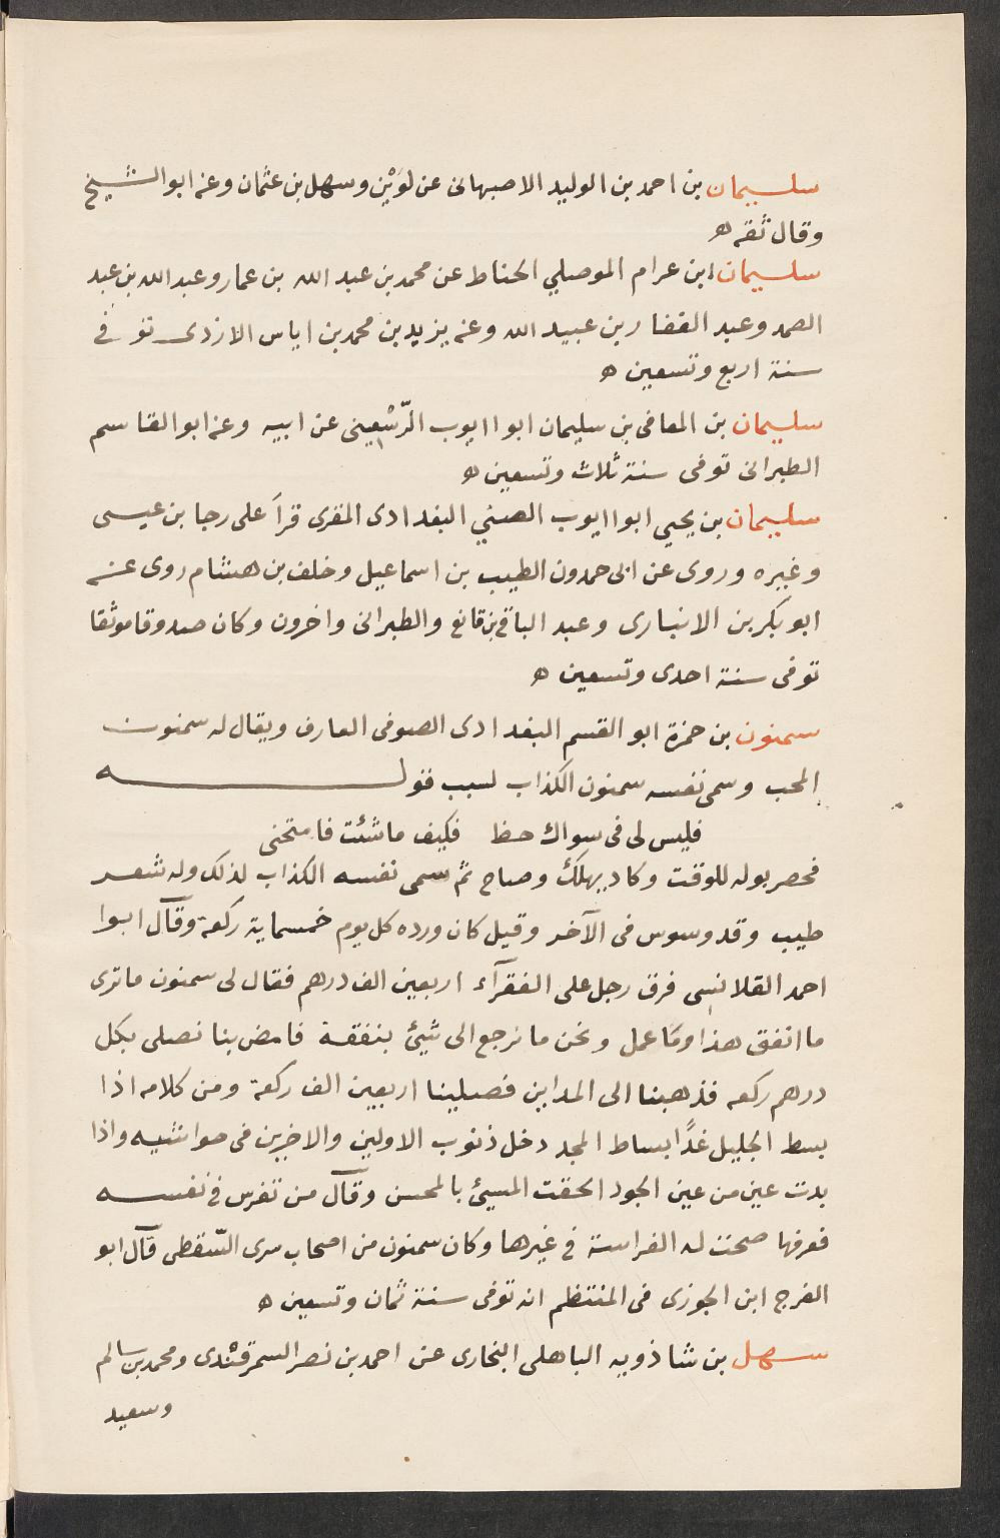 سليمان بن احمد بن الوليد الاصبهانى عن لوَيْن وسهل بن عثمان وعنه ابو الشيخ
وقال ثقه ه
سليمان ابن عرام الموصلي الحناط عن محمد بن عبد الله بن عمار وعبد الله بن عبد
الصمد وعبد الغفار بن عبيد الله وعنه يزيد بن محمد بن اياس الازدى توفي
سنة اربع وتسعين ه
سليمان بن المعافى بن سليمان ابوا ايوب الرّسْعينى عن ابيه وعنه ابو القاسم
الطبرانى توفى سنة ثلاث وتسعين ه
سليمان بن يحيي ابوا ايوب الضبي البغدادى المقرى قرأ على رجا بن عيسى
وغيره وروى عن ابى حمدون الطيب بن اسماعيل وخلف بن هشام روى عنه
ابو بكر بن الانبارى وعبد الباقي بن قانع والطبرانى واخرون وكان صدوقا موثقا
توفى سنة احدى وتسعين ه
سمنون بن حمزة ابو القسم البغدادى الصوفى العارف ويقال له سمنون
المحب وسمى نفسه سمنون الكذاب لسبب قوله
فليس لى فى سواك حظ فكيف ما شئت فامتحنى
فحصر بوله للوقت وكاد يهلك وصاح ثم سمى نفسه الكذاب لذلك وله شعر
طيب وقد وسوس فى الآخر وقيل كان ورده كل يوم خمسماية ركعة وقال ابوا
احمد القلانسى فرق رجل على الفقرآء اربعين الف درهم فقال لى سمنون ما ترى
ما انفق هذا وما عمل ونحن ما نرجع الى شيئ بنفقة فامض بنا نصلى بكل
درهم ركعه فذهبنا الى المداين فصلينا اربعين الف ركعة ومن كلامه اذا
بسط الجليل غدًا بساط المجد دخل ذنوب الاولين والاخرين فى حواشيه واذا
بدت عين من عين الجود الحقت المسيئ بالمحسن وقال من تفرس في نفسه
فعرفها صحت له الفراسة في غيرها وكان سمنون من اصحاب سرى السّقطى قال ابو
الفرج ابن الجوزى فى المنتظم انه توفى سنة ثمان وتسعين ه
سهل بن شاذويه الباهلى البخارى عن احمد بن نصر السمرقنْدى ومحمد بن سالم
وسعيد